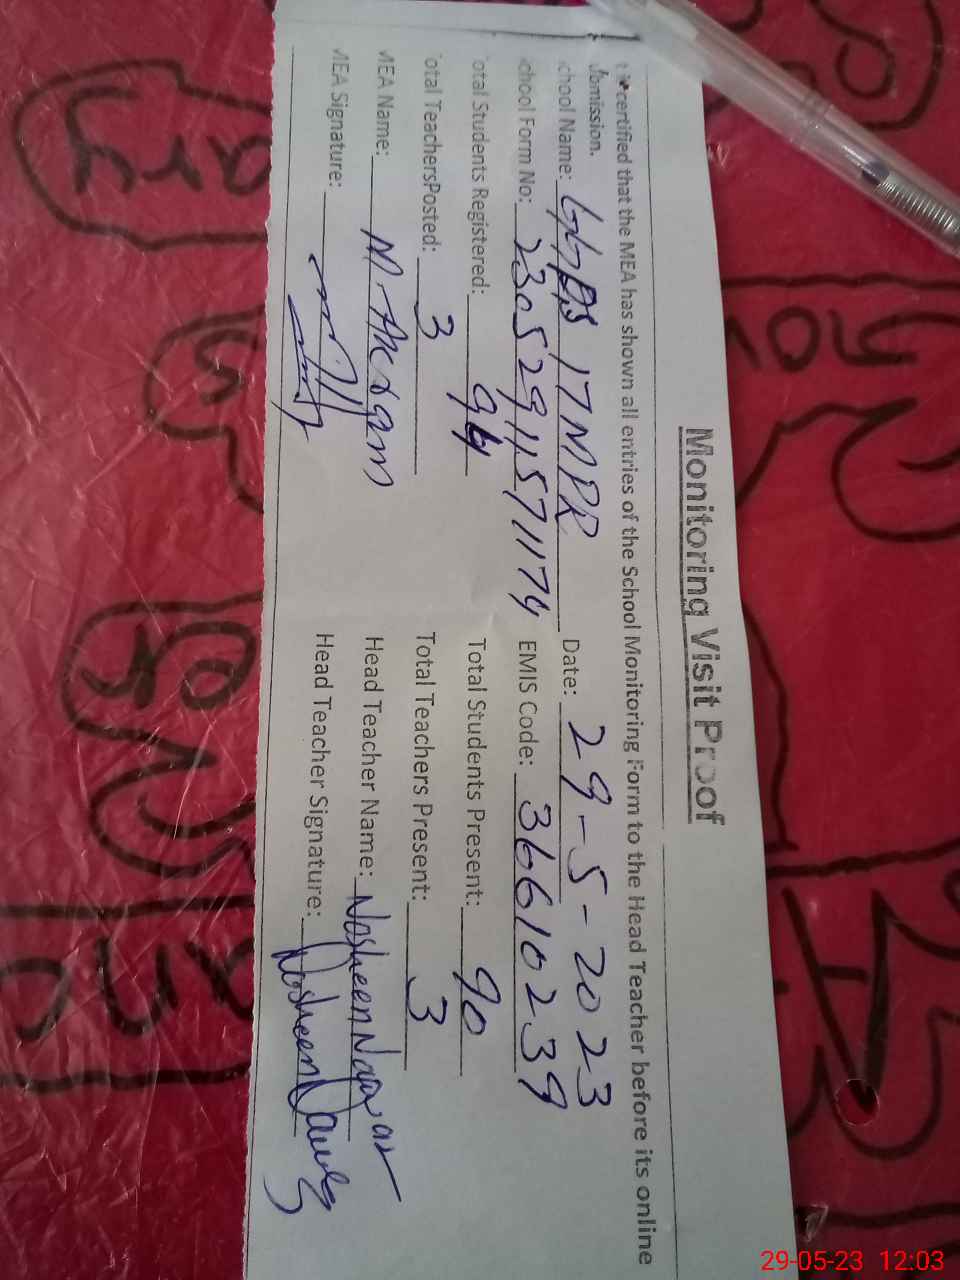 Monitoring Visit Proof
certified that the MEA has shown all entries of the School Monitoring Form to the Head Teacher before its online
bmission.
chool Name: GGPS 17 MPR Date: 29-5-2023
chool Form No: 23052911571174 EMIS Code: 36610239
otal Students Registered: 94 Total Students Present: 90
otal TeachersPosted: 3 Total Teachers Present: 3
MEA Name: M. Akram Head Teacher Name: Nosheen
MEA Signature: Head Teacher Signature: Nosheen
29-05-23 12:03